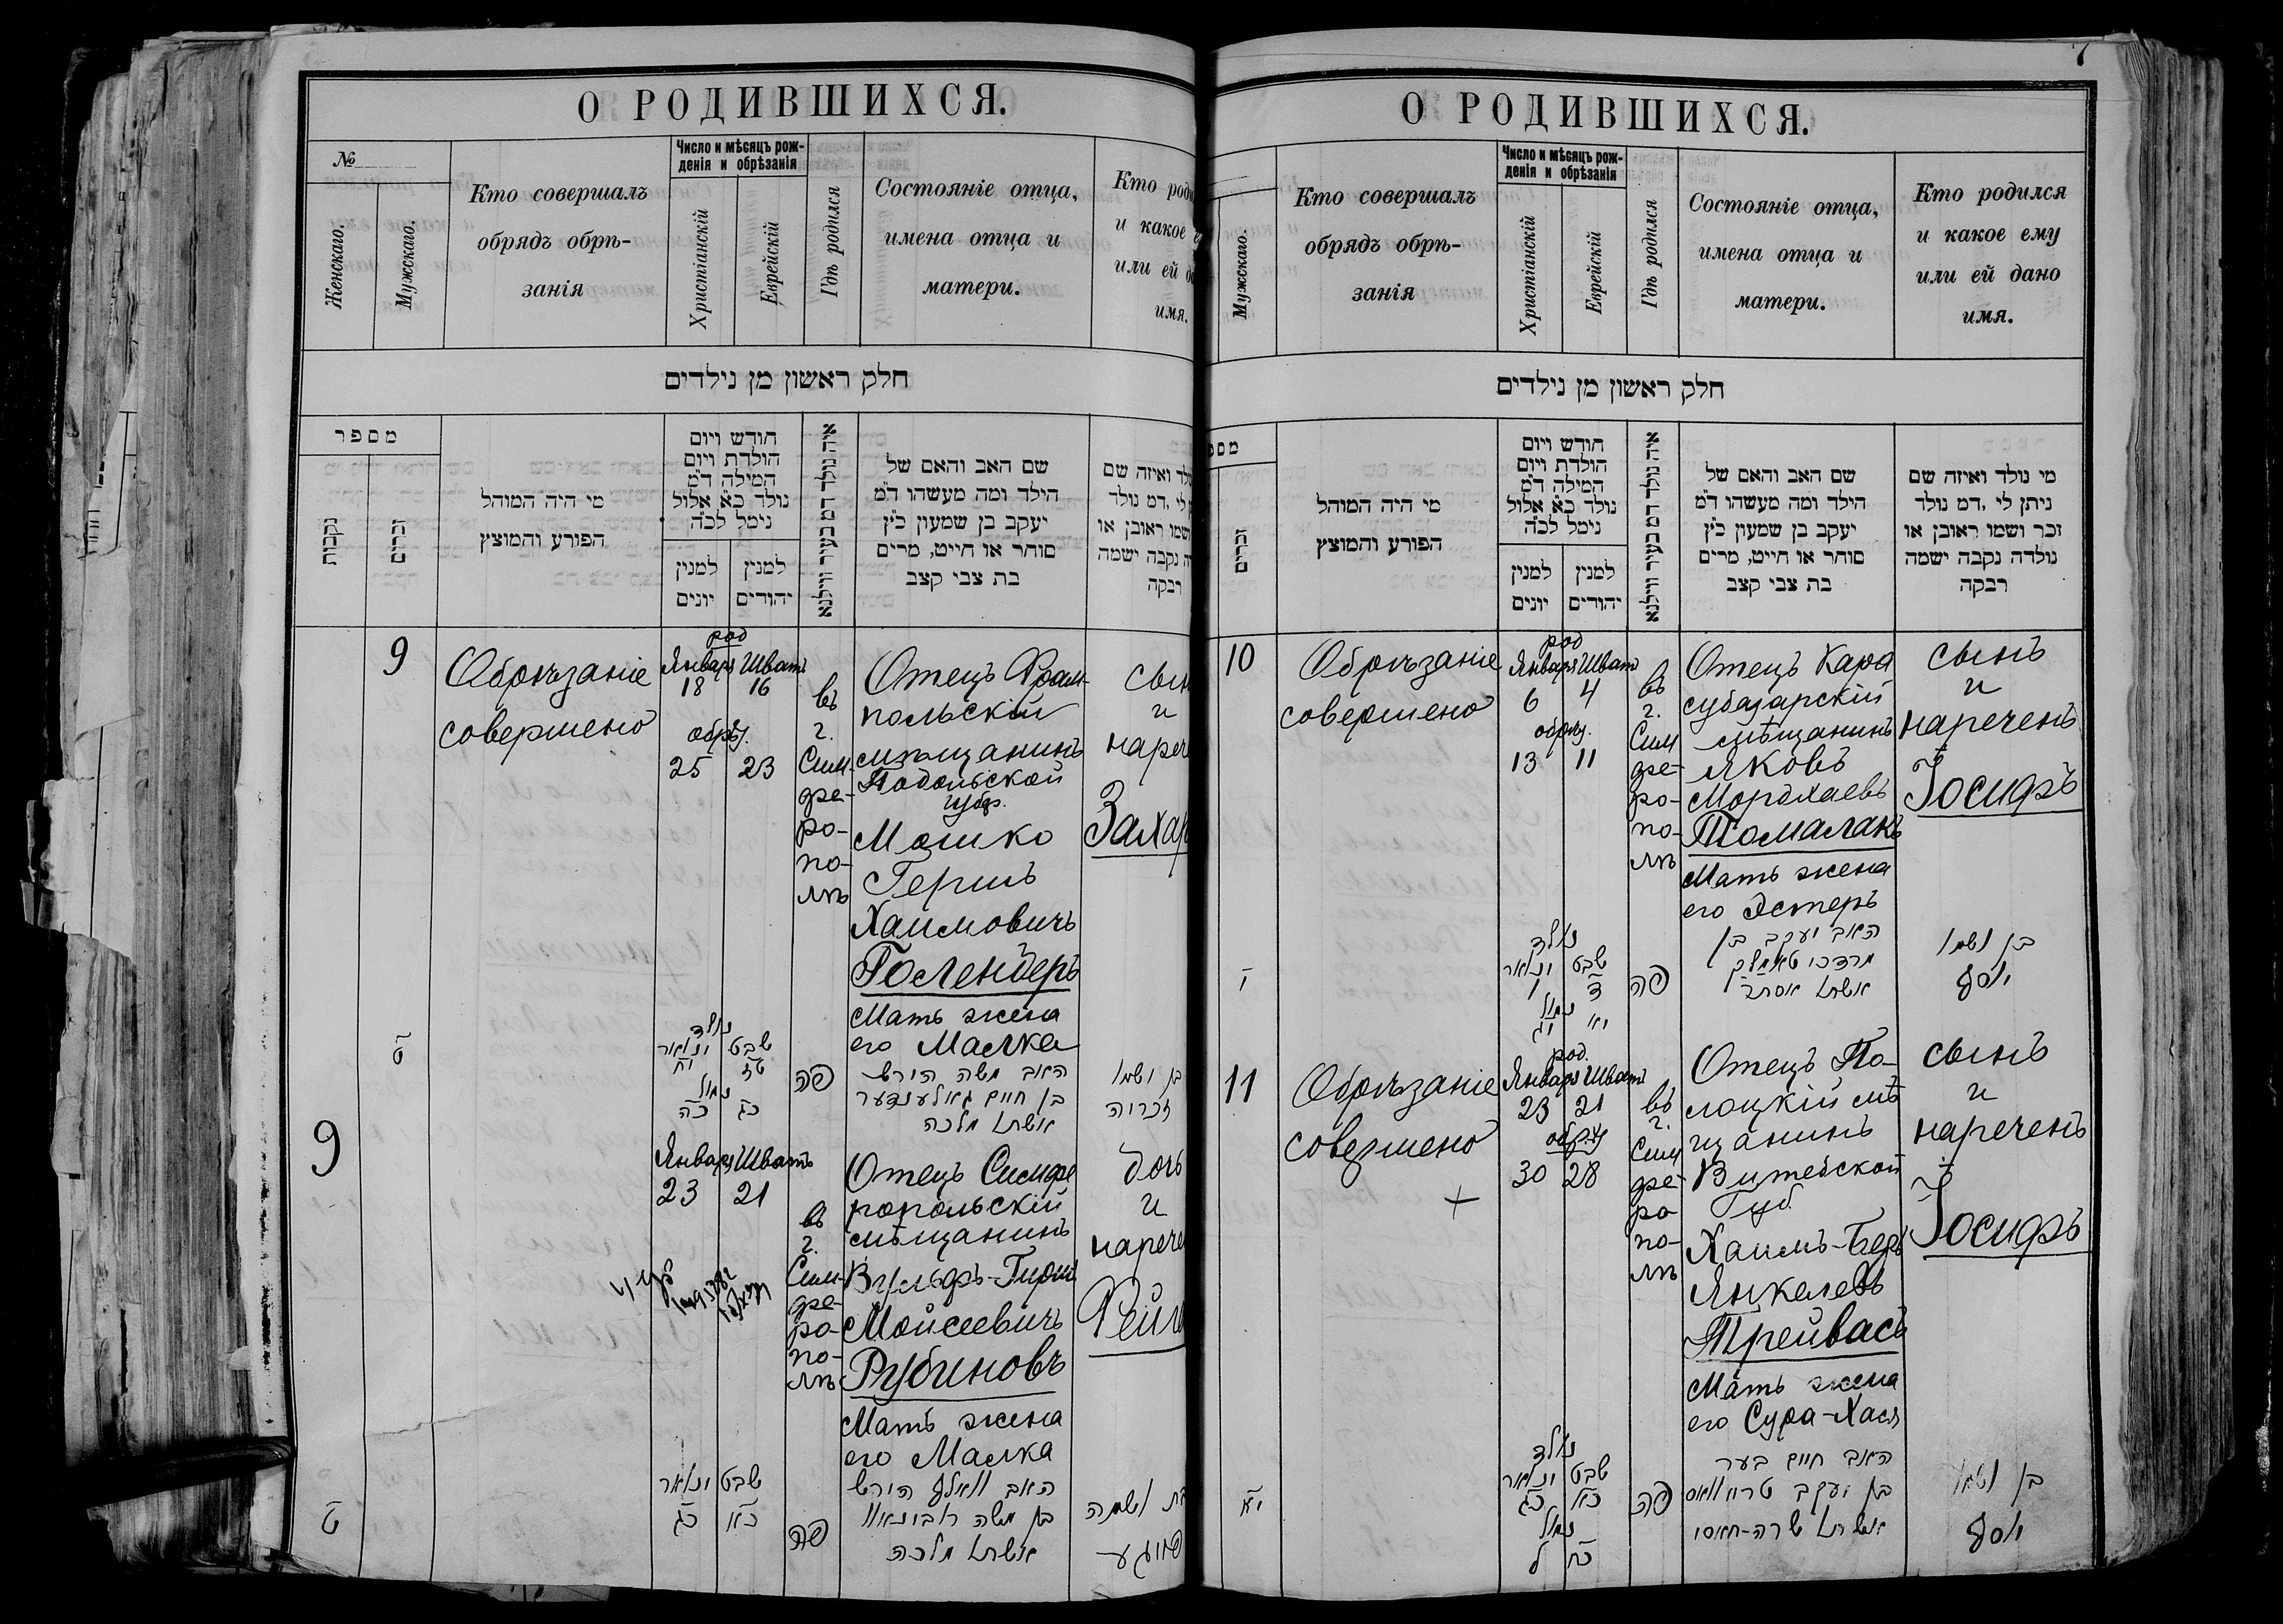 7
О РОДИВШИХСЯ.
№
Женскаго.
Мужскаго.
Кто совершалъ
обрядъ обрѣ-
занія
Число и мѣсяцъ рож-
денія и обрѣзанія
Христіанскій
Еврейскій
Гдѣ родился
Состояніе отца,
имена отца и
матери.
Кто роди
и какое
или ей
имя.
חלק ראשון מן נילדים
מספר
נקבות
זכרים
מי היה המוהל
הפורע והמוצץ
חודש ויום
הולדת ויום
המילה ד״מ
נולד כ״א אלול
נימל לכ״ה
למנין
יונים
למנין
יהודים
איה נולד דמ בעיר ווילנא
שם האב והאם של
הילד ומה מעשהו ד״מ
יעקב בן שמעון כ״ץ
סוחר או חייט, מרים
בת צבי קצב
ואיזה שם
לי ,דמ נולד
ושמו ראובן או
נקבה ישמה
רבקה
9
Обрѣзаніе
совершено
род
Январ Шватъ
18 16
обрѣз.
25 23
въ
г.
Сим-
фе-
ро-
по-
лѣ
Отецъ Фрам-
польскій
мѣщанинъ
Подольской
губер.
Мошко
Гершъ
Хаимовичъ
Голендеръ
Мать жена
его Малка
сын
и
нареч
Захар
ט
נולד
שבט ינואר
טז יח
נמול
כג כה
פה
האב משה הירש
בן חיים גאלענדער
אשתו מלכה
בן ושמו
זכריה
9
Январ Шватъ
23 21
въ
г.
Сим-
фе-
ро-
по-
лѣ
Отецъ Симфе
ропольскій
мѣщанинъ
Вульфъ-Гирш
Мойсеевичъ
Рубиновъ
Мать жена
его Малка
дочь
и
нарече
Фейг
ט
שבט ינואר
כא כג
פה
האב וואלף הירש
בן משה
אשתו מלכה
בת ושמה
פייגע
О РОДИВШИХСЯ.
Мужскаго.
Кто совершалъ
обрядъ обрѣ-
занія
Число и мѣсяцъ рож-
денія и обрѣзанія
Христіанскій
Еврейскій
Гдѣ родился
Состояніе отца,
имена отца и
матери.
Кто родился
и какое ему
или ей дано
имя.
חלק ראשון מן נילדים
מספ
זכרים
מי היה המוהל
הפורע והמוצץ
חודש ויום
הולדת ויום
המילה ד״מ
נולד כ״א אלול
נימל לכ״ה
למנין
יונים
למנין
יהודים
איה נולד דמ בעיר ווילנא
שם האב והאם של
הילד ומה מעשהו ד״מ
יעקב בן שמעון כ״ץ
סוחר או חייט, מרים
בת צבי קצב
מי נולד ואיזה שם
ניתן לי ,דמ נולד
זכר ושמו ראובן או
נולדה נקבה ישמה
רבקה
10
Обрѣзаніе
совершено
род
Январ Шват
6 4
обрѣз.
13 11
въ
г.
Сим
фе-
ро-
по-
лѣ
Отецъ Кара
субазарскій
мѣщанинъ
Яковъ
Мордхаевъ
Томалакъ
Мать жена
его Эстеръ
сынъ
и
нареченъ
Іосифъ
י
נולד
שבט ינואר
ד ו
נמול
יא יג
פה
האב יעקב בן
מרדכי טאמלק
אשתו אסתר
בן ושמו
יוסף
11
Обрѣзаніе
совершено
род.
Январ Шватъ
23 21
обр.
30 28
въ
г.
Сим
фе-
ро
по-
лѣ
Отецъ По-
лоцкій мѣ
щанинъ
Витебской
Губ.
Хаимъ-Беръ
Янкелевъ
Трейвасъ
Мать жена
его Сура-Хася
сынъ
и
нареченъ
Іосифъ
יא
נולד
שבט ינואר
כא כג
נמול
כח ל
פה
האב חיים בער
בן יעקב טרייוואס
אשתו שרה-חאסי
בן ושמו
יוסף